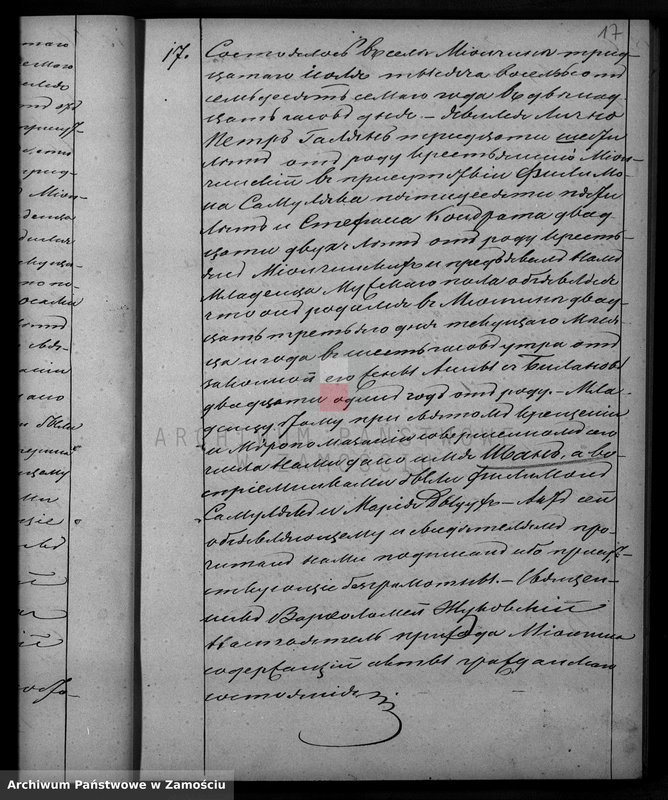 17
17. Состоялось в селе Міончине трид-
цатаго іюля тысяча восемьсотъ
семьдесятъ седьмаго года въ двѣнад-
цать часовъ дня. – Явился лично
Петръ Галянъ тридцати шести
лѣтъ отъ роду крестьянинъ Міон-
чинскій въ присутствіи Филимо-
на Самуляка пятидесяти пяти
лѣтъ и Стефана Кондрата двад-
цати двухъ лѣтъ отъ роду кресть-
янъ Міончинскихъ и предъявилъ намъ
младенца мужескаго пола объявляя
что онъ родился въ Міончинѣ двад-
цать третьяго дня текущаго меся-
ца и года въ шесть часовъ утра отъ
законной его жены Анны съ
двадцати одинъ годъ отъ роду. – Мла-
денцу этому при святомъ крещеніи
и Мѵропомазаніи совершенномъ сего
числа нами дано имя Иванъ, а во-
спріемниками были Филимонъ
Самулякъ и Марія – Актъ сей
объявляющему и свидѣтелямъ про-
читанъ нами подписанъ ибо присут-
ствующіе безграмотны. – Священ-
никъ Варѳоломей Жуковскій
Настоятель прихода Міончина
содержащій акты гражданскаго
состоянія
ARCHIWUM PAŃSTWOWE
W ZAMOŚCIU
Archiwum Państwowe w Zamościu